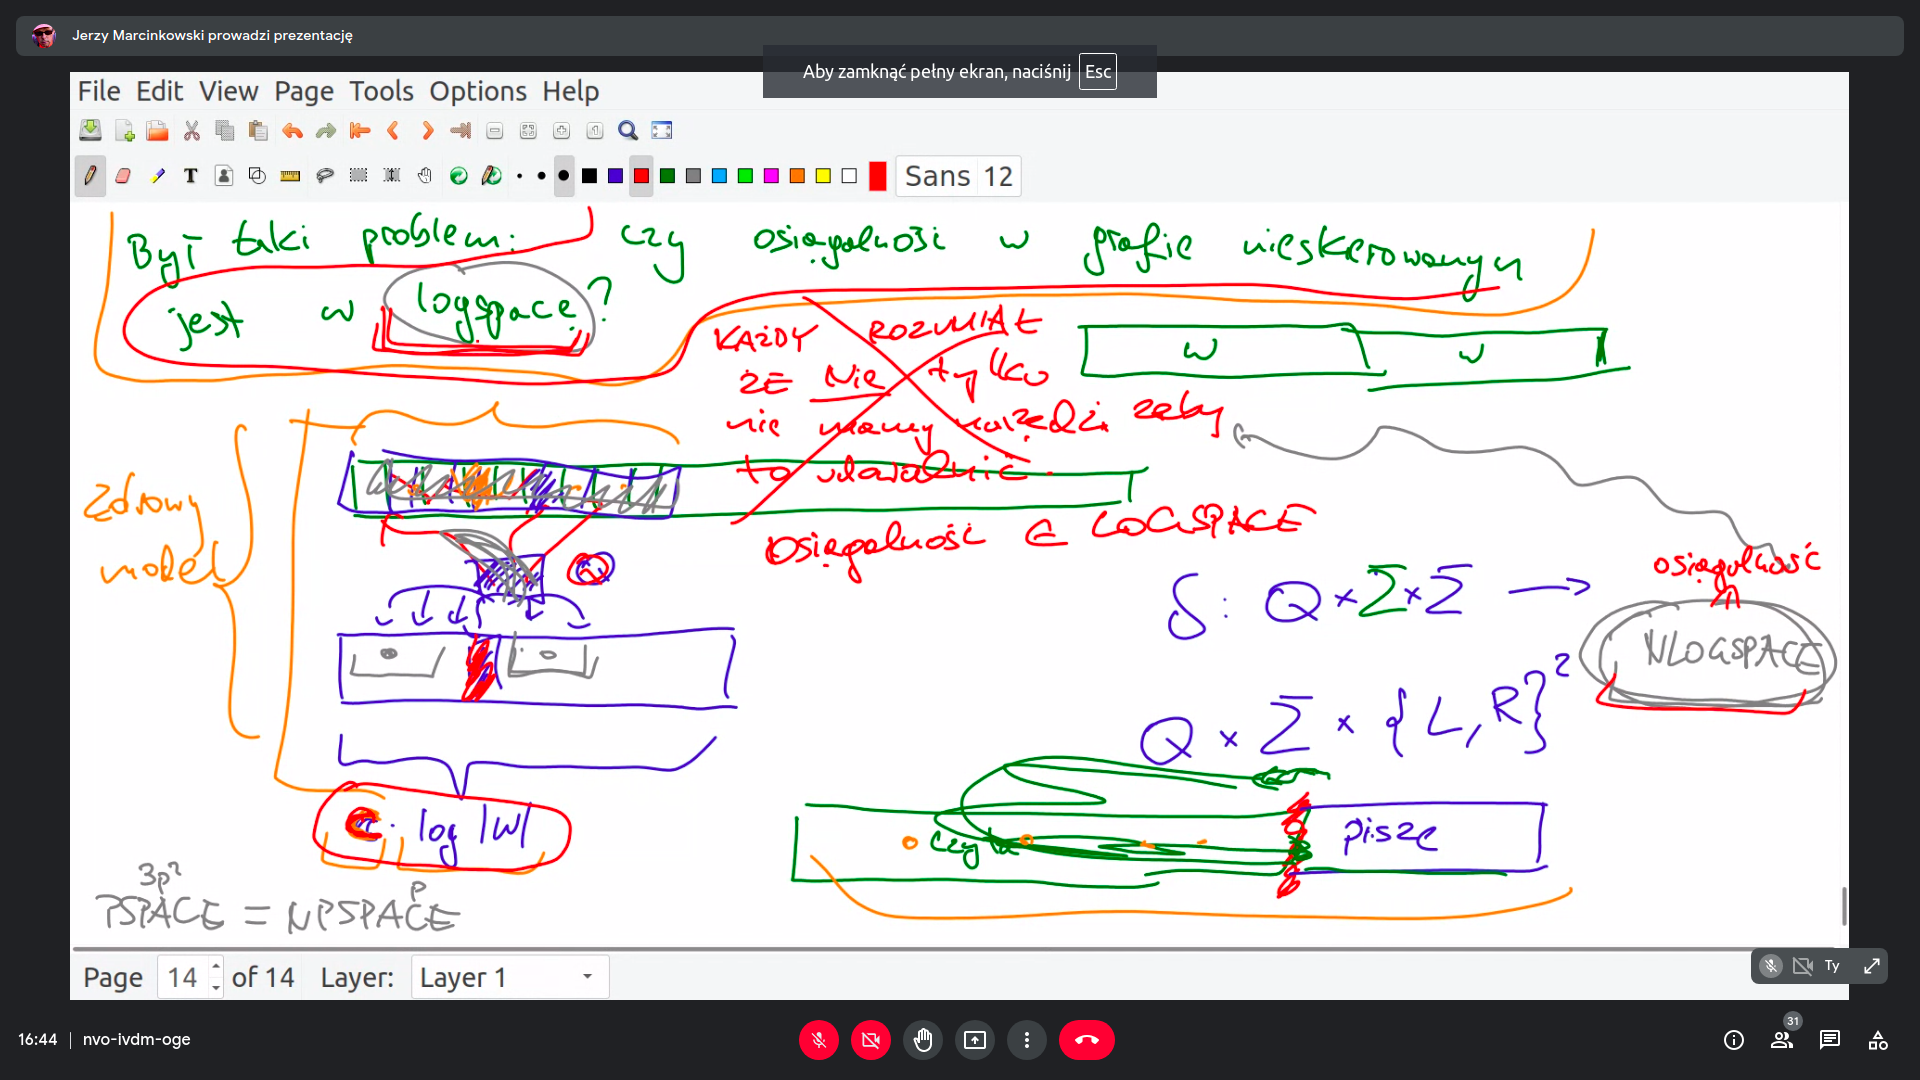 Jerzy Marcinkowski prowadzi prezentację
Aby zamknąć pełny ekran, naciśnij Esc
File Edit View Page Tools Options Help
Sans 12
Był taki problem: czy osiągalność w grafie nieskierowanym
jest w logspace?
KAŻDY ROZUMIAŁ
ŻE NIE tylko
nie mamy narzędzi żeby
to udowodnić.
w w
zdrowy
model
OSIĄGALNOŚĆ ∈ LOGSPACE
Q
osiągalność
δ: Q × Σ × Σ →
NLOGSPACE
Q × Σ × {L, R}²
c · log |w|
czyta
pisze
3p² p
PSPACE = NPSPACE
Page 14 of 14 Layer: Layer 1
Ty
16:44 nvo-ivdm-oge
31